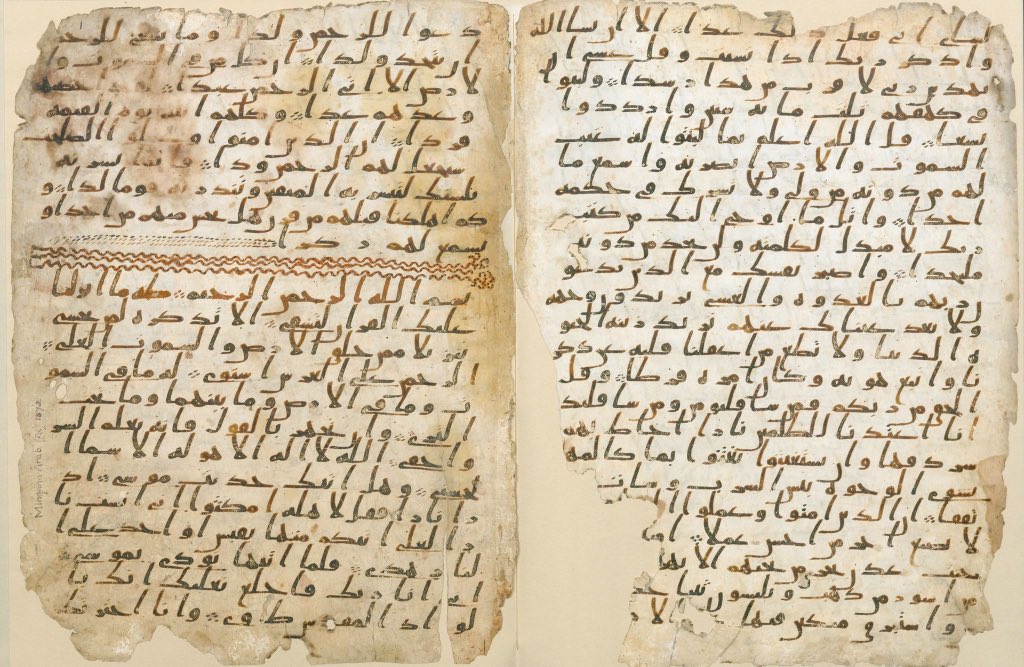 لشاي اني فعل ذلك غدا الا ان يشا الله
واذكر ربك اذا نسيت وقل عسى ان
يهدين ربي لاقرب من هذا رشدا ولبثوا
في كهفهم ثلث مائة سنين وازدادوا
تسعا قل الله اعلم بما لبثوا له غيب
السموت والارض ابصر به واسمع ما
لهم من دونه من ولي ولا يشرك في حكمه
احدا واتل ما اوحي اليك من كتب
ربك لا مبدل لكلمته ولن تجد من دونه
ملتحدا واصبر نفسك مع الذين يدعو
ن ربهم بالغدوه والعشي يريدون وجهه
ولا تعد عيناك عنهم تريد زينة الحيو
ه الدنيا ولا تطع من اغفلنا قلبه عن ذكر
نا واتبع هويه وكان امره فرطا وقل
الحق من ربكم فمن شا فليومن ومن شا فليكفر
انا اعتدنا للظلمين نارا احاط بهم
سردقها وان يستغيثوا يغثوا بما كالمه
يشوي الوجوه بئس الشرب وسات
تفقا ان الذين امنوا وعملوا ا
لا نضيع اجر من احسن عملا
جنت عدن تجري من تحتهم الانه
من اسور من ذهب ويلبسون ثيابا خ
واستبرق متكين فيها الا ر
دعوا للرحمن ولدا وما ينبغي للرحمن
ان يتخذ ولدا ان كل من في السموت وا
لارض الا اتي الرحمن عبدا لقد احصيهم
وعدهم عدا وكلهم اتيه يوم القيمه
فردا ان الذين امنوا وعملوا الصلحت
سيجعل لهم الرحمن ودا فانما يسرنه
بلسنك لتبشر به المتقين وتنذر به قوما لدا و
كم اهلكنا قبلهم من قرن هل تحس منهم من احد او
تسمع لهم ركزا
بسم الله الرحمن الرحيم طه ما انزلنا
عليك القران لتشقى الا تذكره لمن يخشى
تنزيلا ممن خلق الارض والسموت العلى
الرحمن على العرش استوى له ما في السمو
ت وما في الارض وما بينهما وما تحت
الثرى وان تجهر بالقول فانه يعلم السر
واخفى الله لا اله الا هو له الاسما ا
لحسنى وهل اتيك حديث موسى اذ
را نارا فقل لاهله امكثوا اني انست نا
را لعلي اتيكم منها بقبس او اجد على ا
لنار هدى فلما اتيها نودي يموسى
اني انا ربك فاخلع نعليك انك با
لواد المقدس طوى وانا اخترتك
Mingana Arab. Isl. 1572